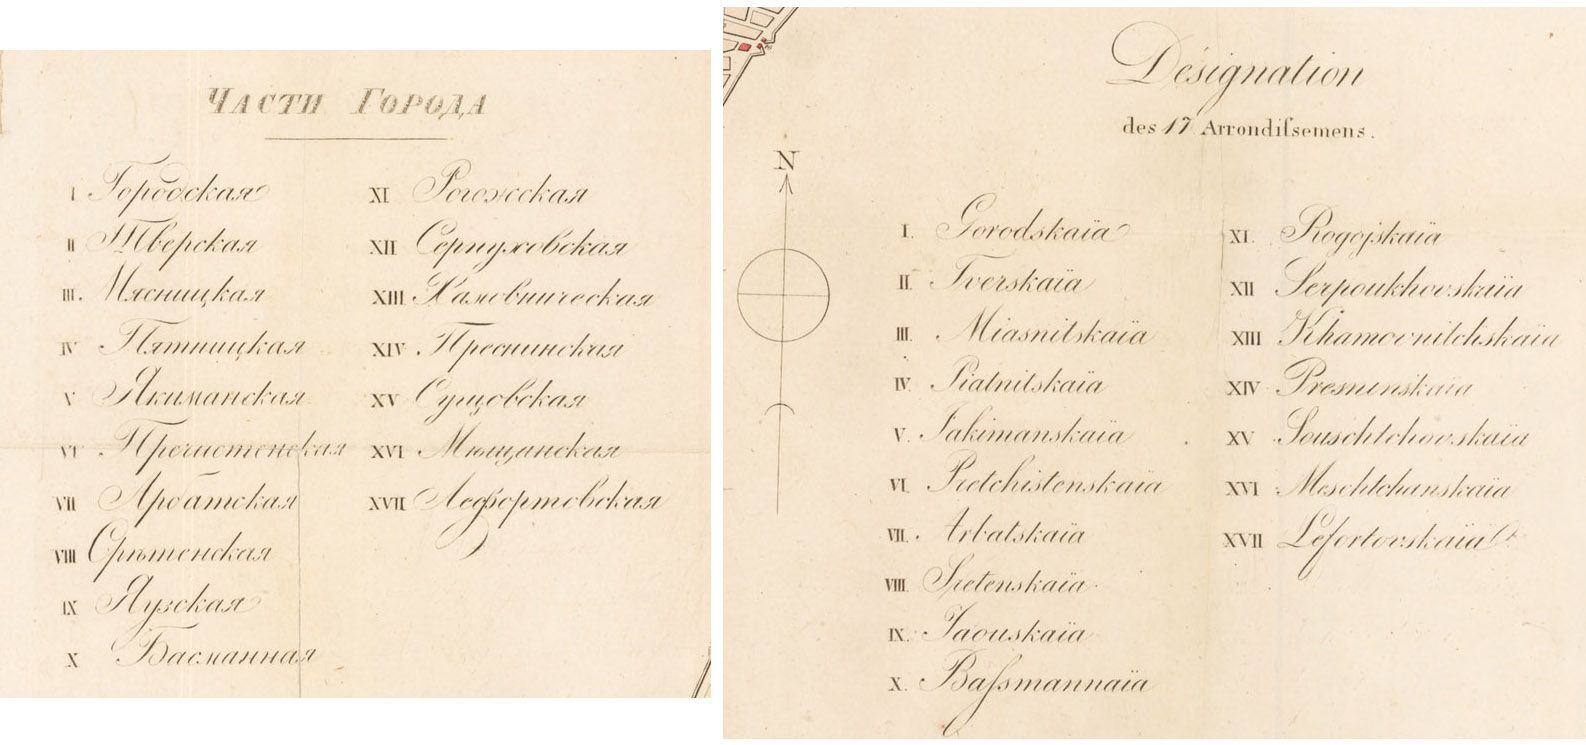 Части Города
I Городская
II Тверская
III. Мясницкая
IV Пятницкая
V Якиманская
VI Пречистенская
VII Арбатская
VIII Срѣтенская
IX Яузская
X Басманная
XI Рогожская
XII Серпуховская
XIII Хамовническая
XIV Преснинская
XV Сущовская
XVI Мѣщанская
XVII Лефортовская
Désignation
des 17 Arrondiſsemens.
N
I. Gorodskaïa
II. Tverskaïa
III. Miasnitskaïa
IV. Piatnitskaïa
V. Jakimanskaïa
VI. Pretchistenskaïa
VII. Arbatskaïa
VIII. Sretenskaïa
IX. Jaouskaïa
X. Baſsmannaïa
XI. Rogojskaïa
XII Serpoukhovskaïa
XIII Khamovnitchskaïa
XIV Presnenskaïa
XV Souschtchovskaïa
XVI Meschtchanskaïa
XVII Lefortovskaïa